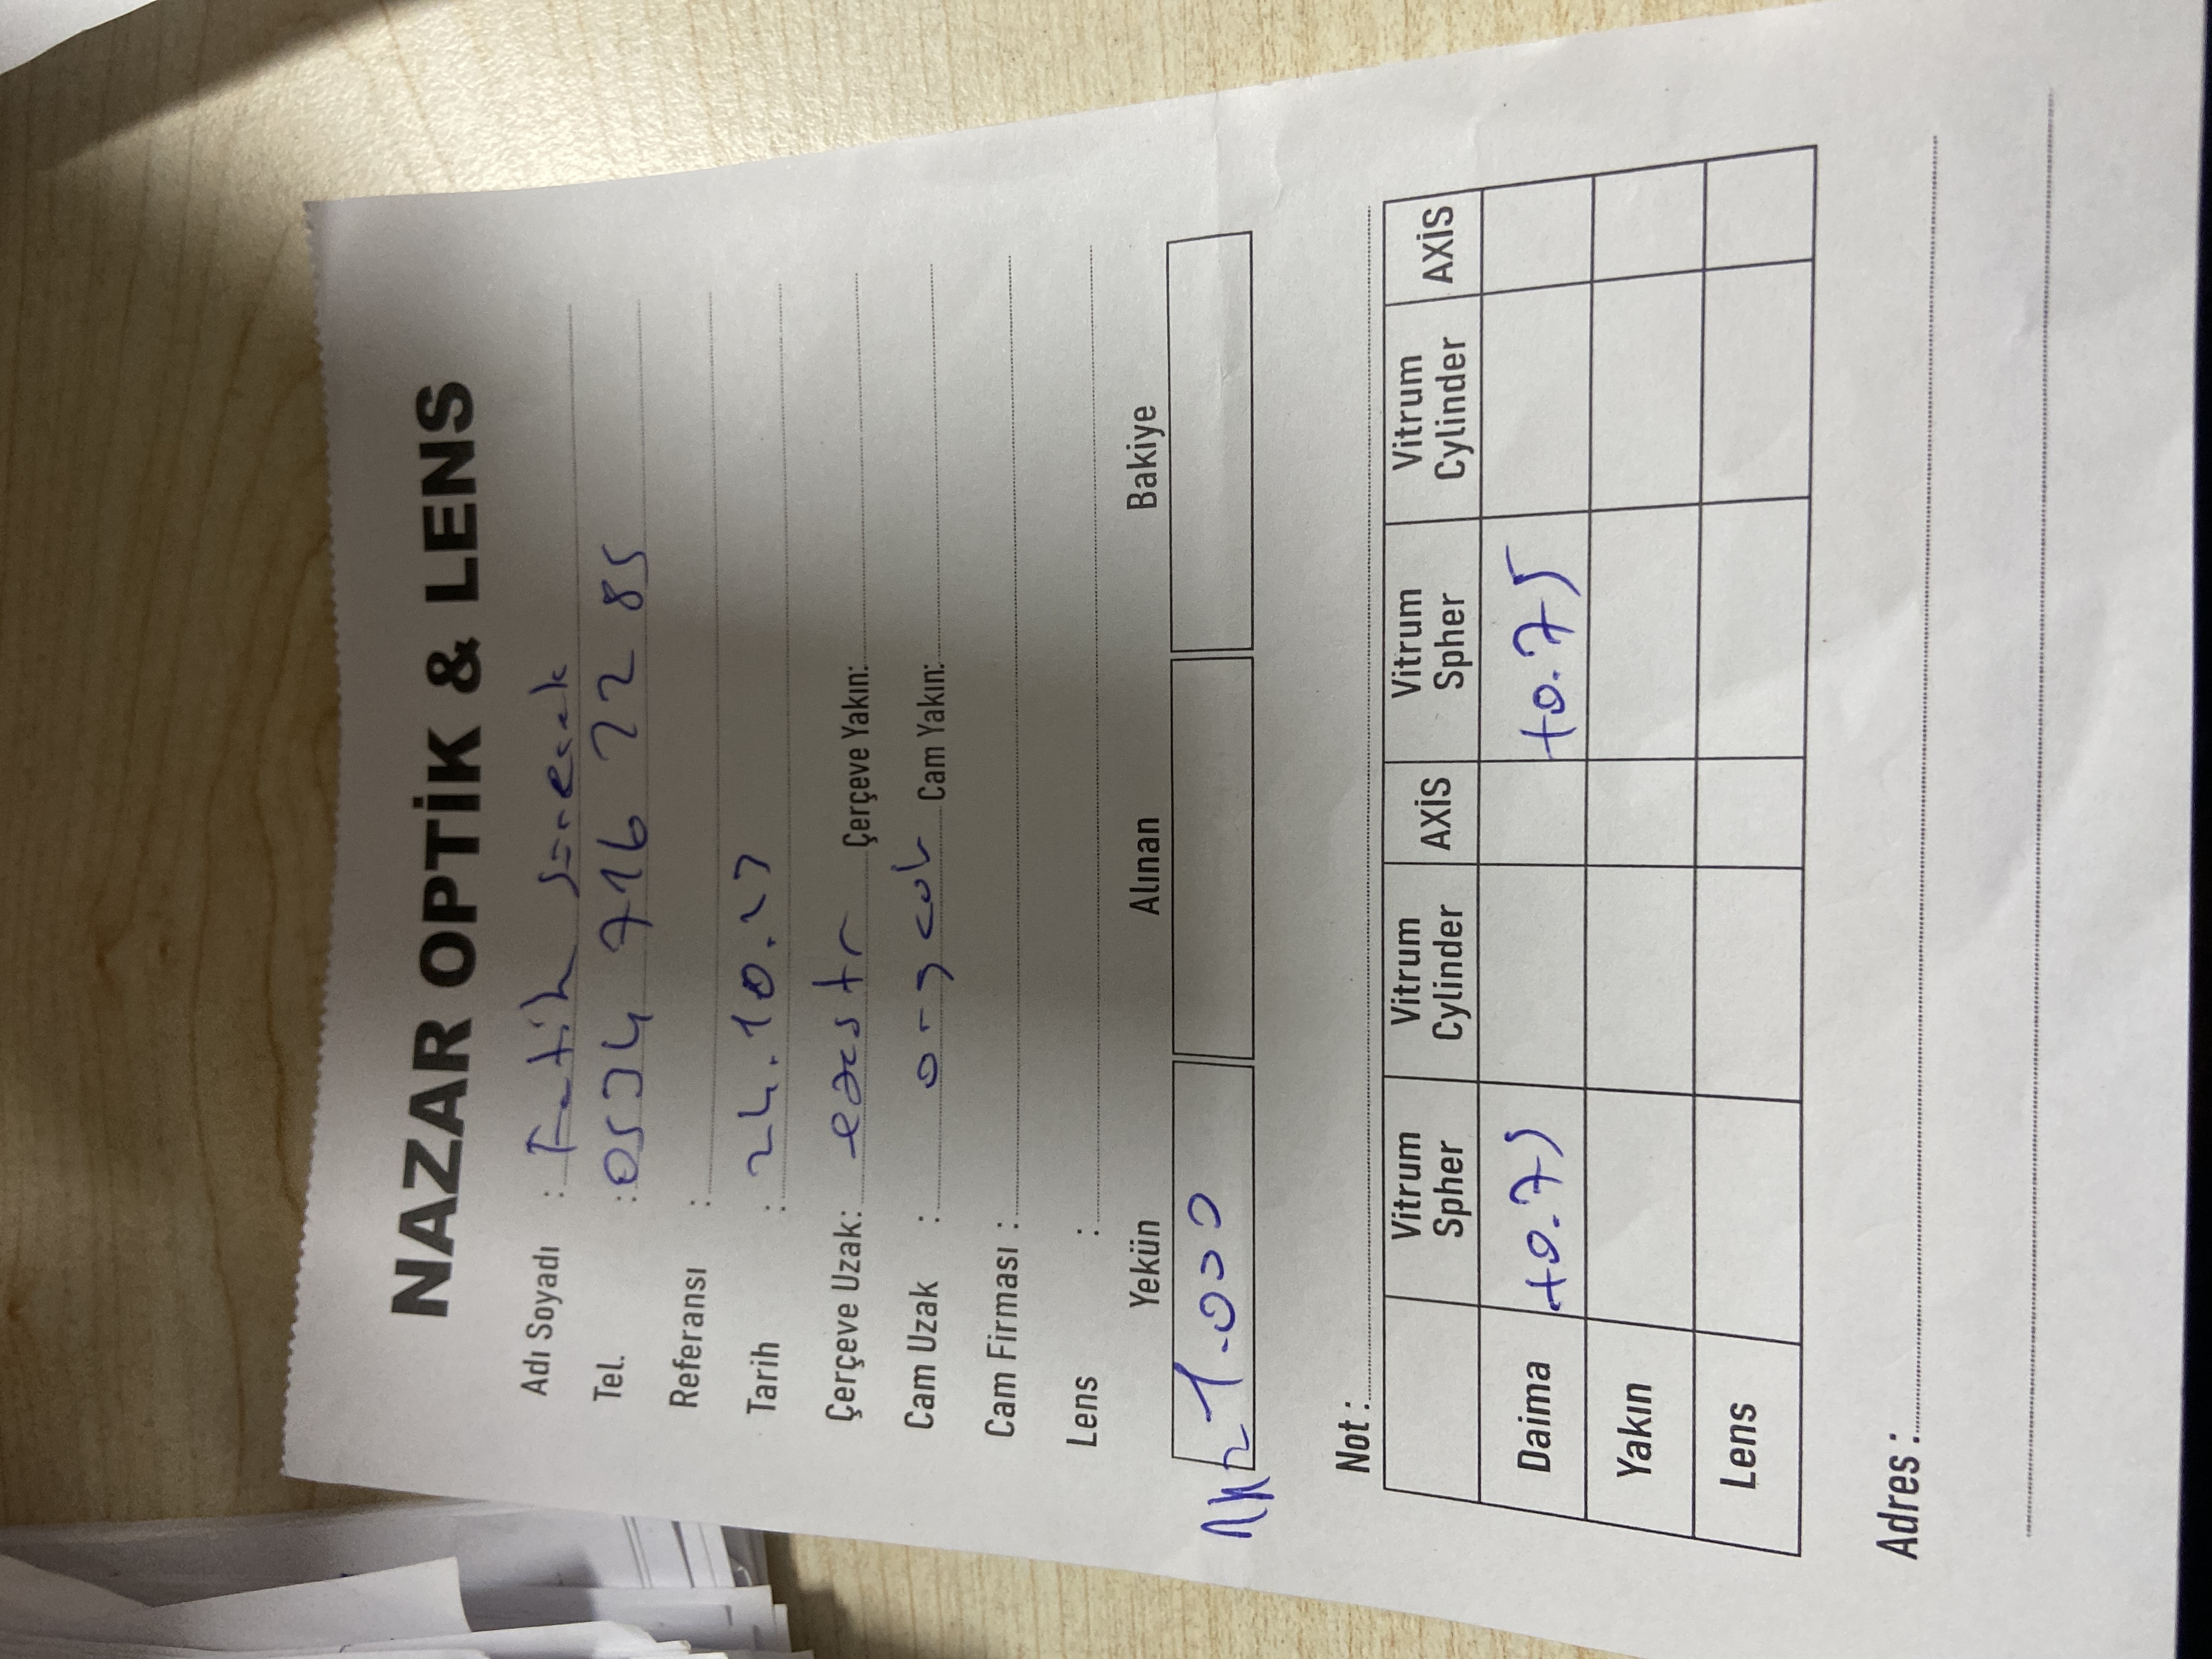 NAZAR OPTİK & LENS
Adı Soyadı : Fatih
Tel. : 0534 716 22 85
Referansı :
Tarih : 24.10.23
Çerçeve Uzak: Çerçeve Yakın:
Cam Uzak : Cam Yakın:
Cam Firması :
Lens :
Yekün Alınan Bakiye
1.000
Not :
Vitrum Spher Vitrum Cylinder AXİS Vitrum Spher Vitrum Cylinder AXİS
Daima +0.75 +0.75
Yakın
Lens
Adres :